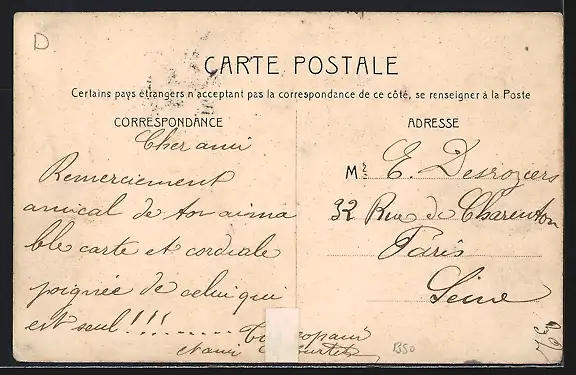 D
CARTE POSTALE
Certains pays étrangers n'acceptant pas la correspondance de ce côté, se renseigner à la Poste
CORRESPONDANCE
Cher ami
Remerciement
amical de ton aima
ble carte et cordiale
poignée de celui qui
est seul!!!
et ami
ADRESSE
Mr E. Desroziers
32 Rue de Charenton
Paris
Seine
1350